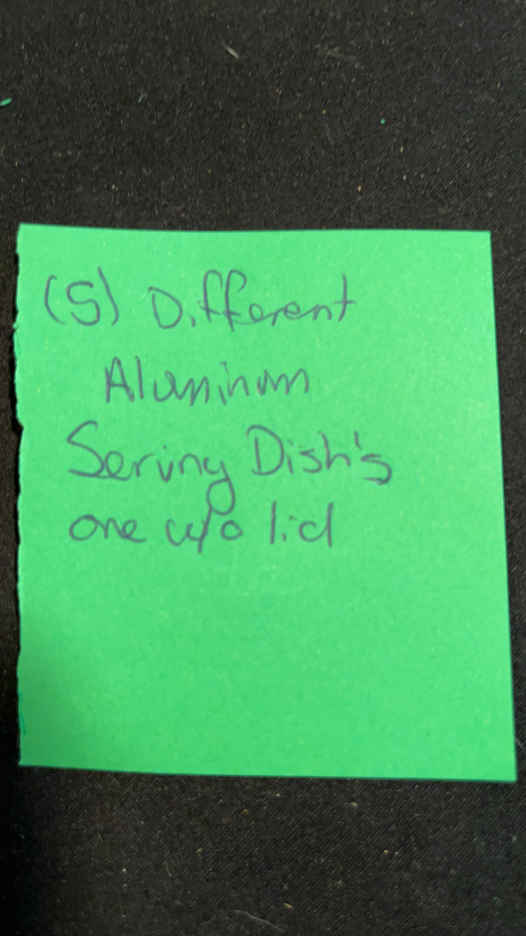 (5) Different
Aluminum
Serving Dish's
one w/o lid